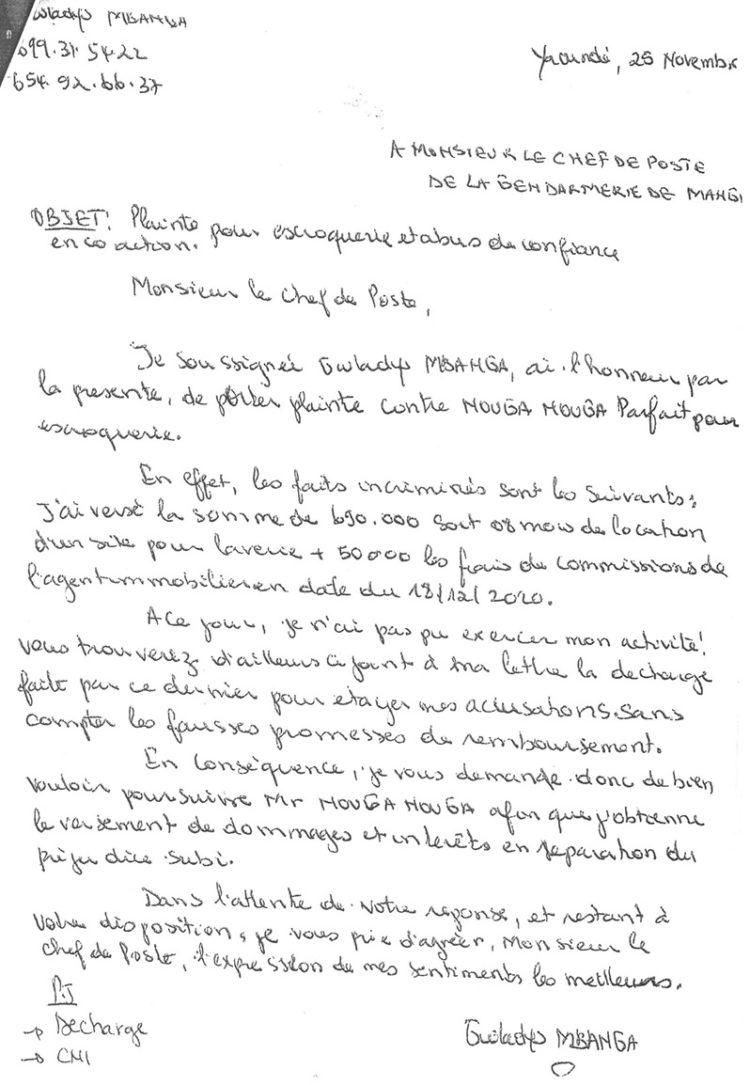 Gwladys MBANGA
699.31.54.22
654.92.66.37
Yaoundé, 25 Novembr
A MONSIEUR LE CHEF DE POSTE
DE LA GENDARMERIE DE
OBJET: Plainte pour escroquerie et abus de confiance
en co action.
Monsieur le chef de Poste,
Je Soussignée Gwladys MBANGA, ai l'honneur par
la presente, de porter plainte contre NOUGA NOUGA Parfait pour
escroquerie.
En effet, les faits incriminés sont les suivants:
J'ai versé la somme de 690.000 Soit 08 mois de location
d'un site pour laverie + 50 000 les frais de commissions de
l'agent immobilier en date du 18/12/2020.
A ce jour, je n'ai pas pu exercer mon activité!
vous trouverez d'ailleurs ci joint à ma lettre la decharge
faite par ce dernier pour etayer mes accusations. Sans
compter les fausses promesses de remboursement.
En Conséquence, je vous demande donc de bien
vouloir poursuivre Mr NOUGA NOUGA afin que j'obtienne
le versement de dommages et interêts en reparation du
prejudice subi.
Dans l'attente de votre reponse, et restant à
votre disposition, je vous prie d'agréer, Monsieur le
chef de Poste, l'expression de mes sentiments les meilleurs.
P.J
→ Decharge
→ CNI
Gwladys MBANGA